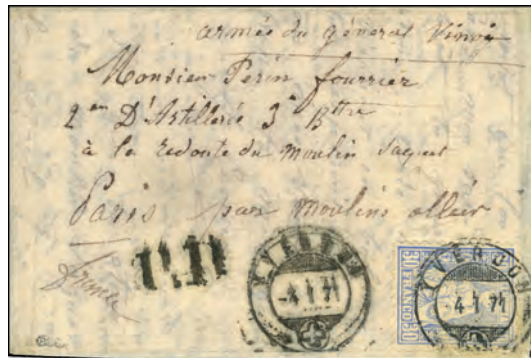 armée du général Vinoy
Monsieur Perin fourrier
2em D'Artillerie 3e Bttie
à la redoute du moulin saquet
Paris par moulins allier
france
P.P.
YVERDON
-4 I 71
YVERDON
-4 I 71
FRANCO
30